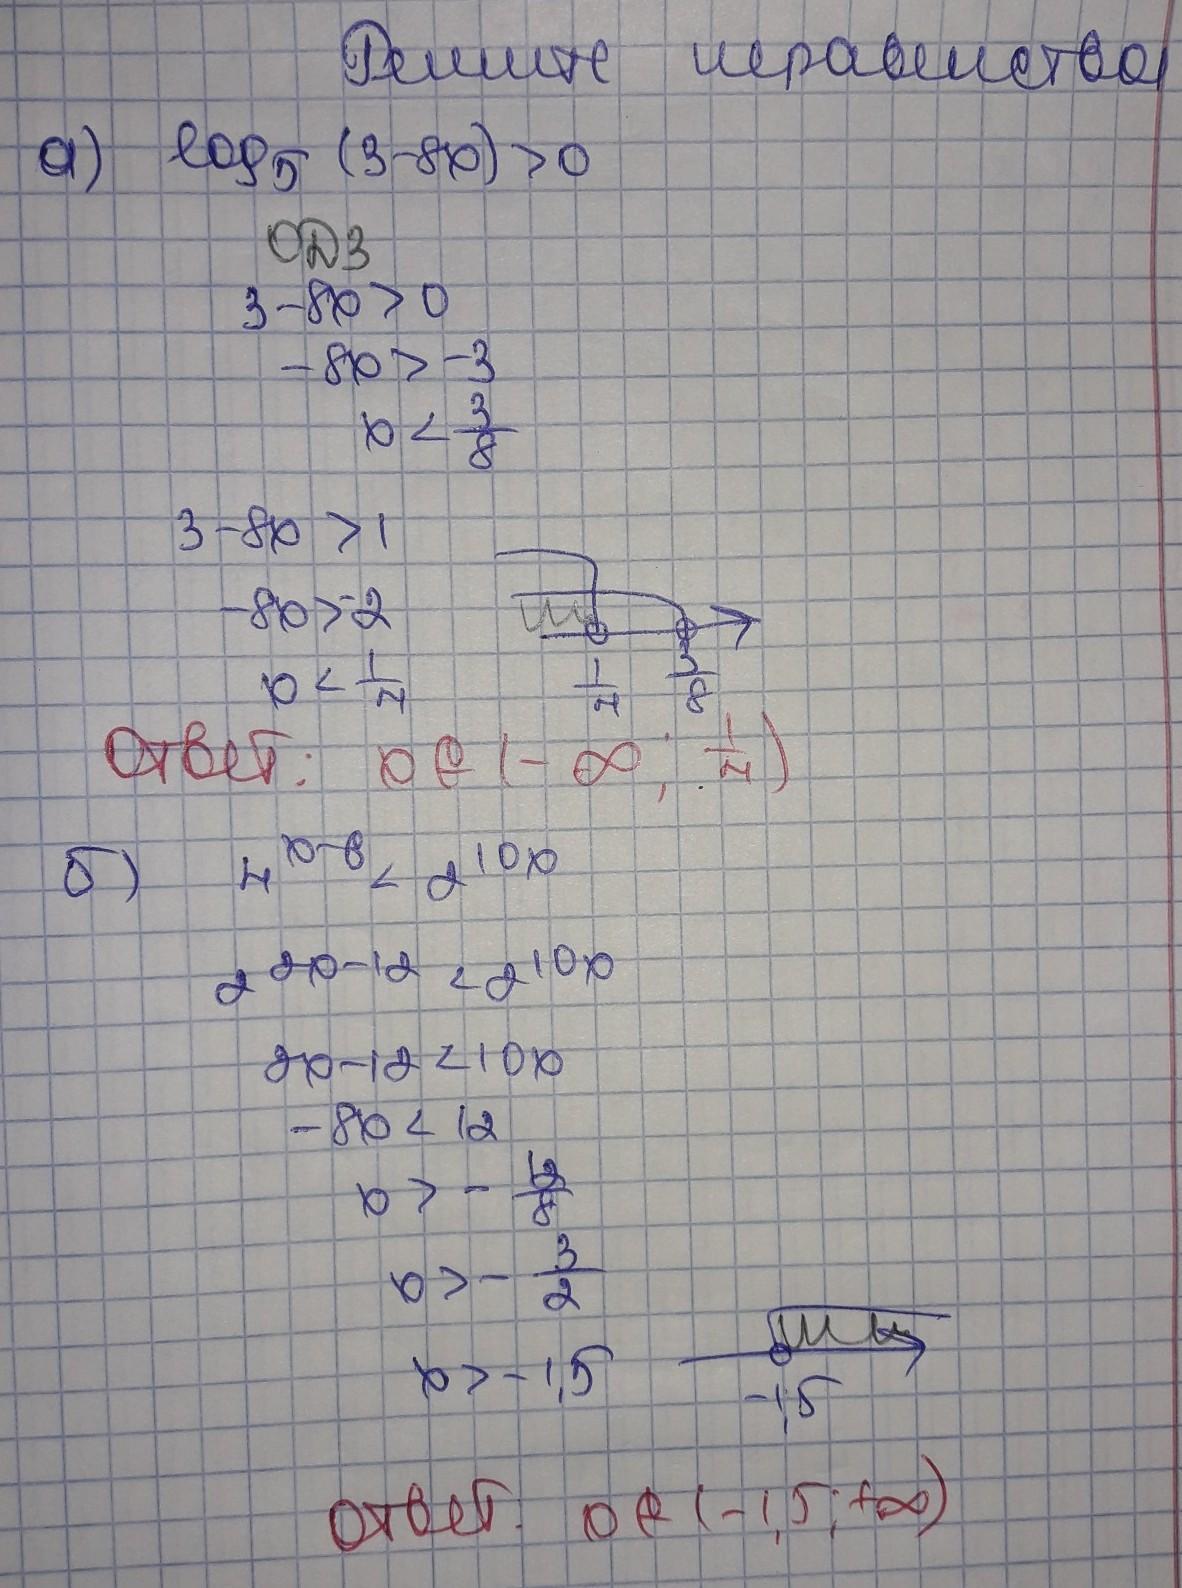 Решите неравенства
а) log₅ (3-8x) > 0
ОДЗ
3-8x > 0
-8x > -3
x < 3/8
3-8x > 1
-8x > -2
x < 1/4
1/4 3/8
Ответ: x ∈ (-∞; 1/4)
б) 4^(x-6) < 2^(10x)
2^(2x-12) < 2^(10x)
2x-12 < 10x
-8x < 12
x > - 12/8
x > - 3/2
x > -1,5
-1,5
Ответ: x ∈ (-1,5; +∞)